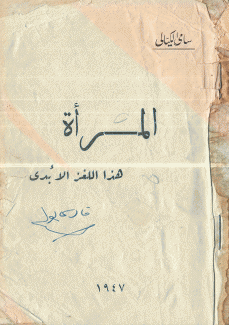 سامي الكيالي
المرأة
هذا اللغز الأبدى
١٩٤٧